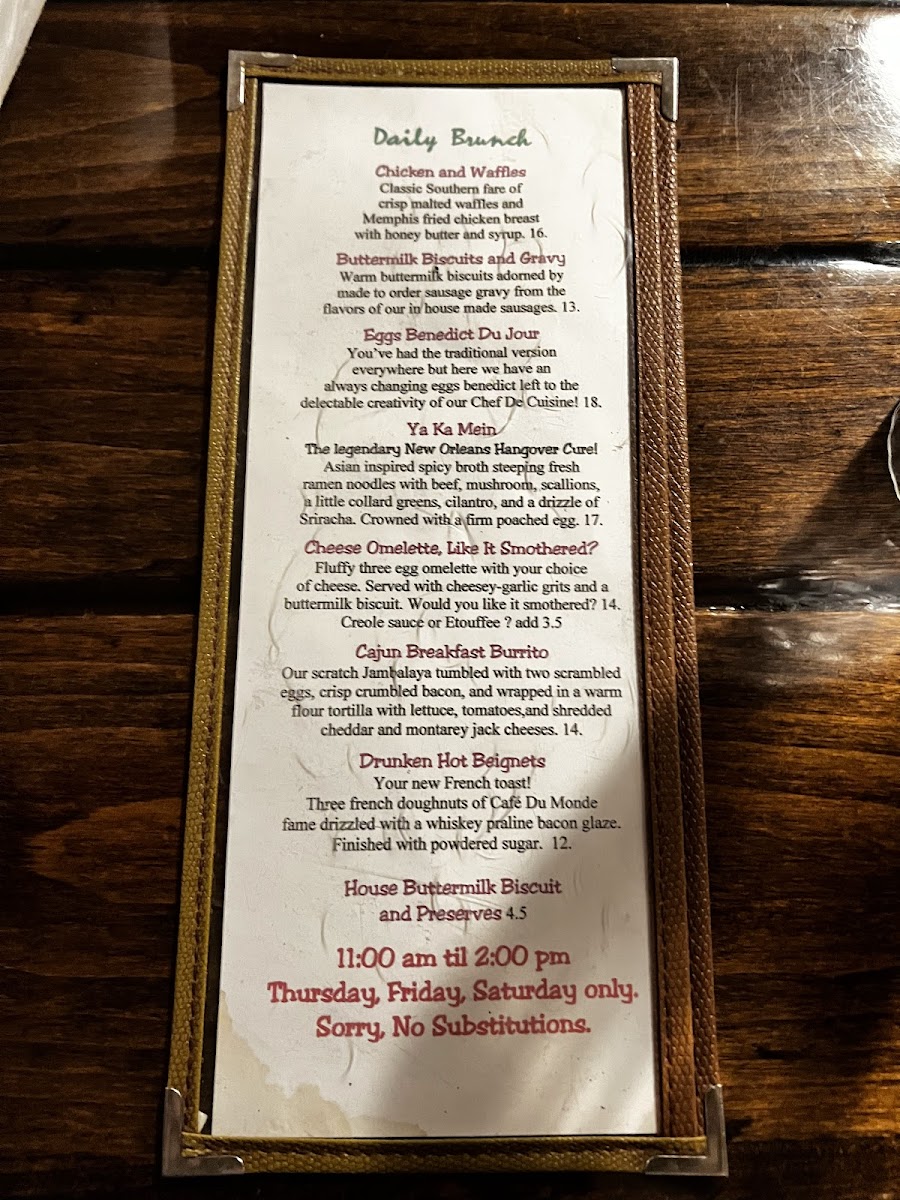 Daily Brunch
Chicken and Waffles
Classic Southern fare of
crisp malted waffles and
Memphis fried chicken breast
with honey butter and syrup. 16.
Buttermilk Biscuits and Gravy
Warm buttermilk biscuits adorned by
made to order sausage gravy from the
flavors of our in house made sausages. 13.
Eggs Benedict Du Jour
You've had the traditional version
everywhere but here we have an
always changing eggs benedict left to the
delectable creativity of our Chef De Cuisine! 18.
Ya Ka Mein
The legendary New Orleans Hangover Cure!
Asian inspired spicy broth steeping fresh
ramen noodles with beef, mushroom, scallions,
a little collard greens, cilantro, and a drizzle of
Sriracha. Crowned with a firm poached egg. 17.
Cheese Omelette, Like It Smothered?
Fluffy three egg omelette with your choice
of cheese. Served with cheesey-garlic grits and a
buttermilk biscuit. Would you like it smothered? 14.
Creole sauce or Etouffee ? add 3.5
Cajun Breakfast Burrito
Our scratch Jambalaya tumbled with two scrambled
eggs, crisp crumbled bacon, and wrapped in a warm
flour tortilla with lettuce, tomatoes,and shredded
cheddar and montarey jack cheeses. 14.
Drunken Hot Beignets
Your new French toast!
Three french doughnuts of Café Du Monde
fame drizzled with a whiskey praline bacon glaze.
Finished with powdered sugar. 12.
House Buttermilk Biscuit
and Preserves 4.5
11:00 am til 2:00 pm
Thursday, Friday, Saturday only.
Sorry, No Substitutions.